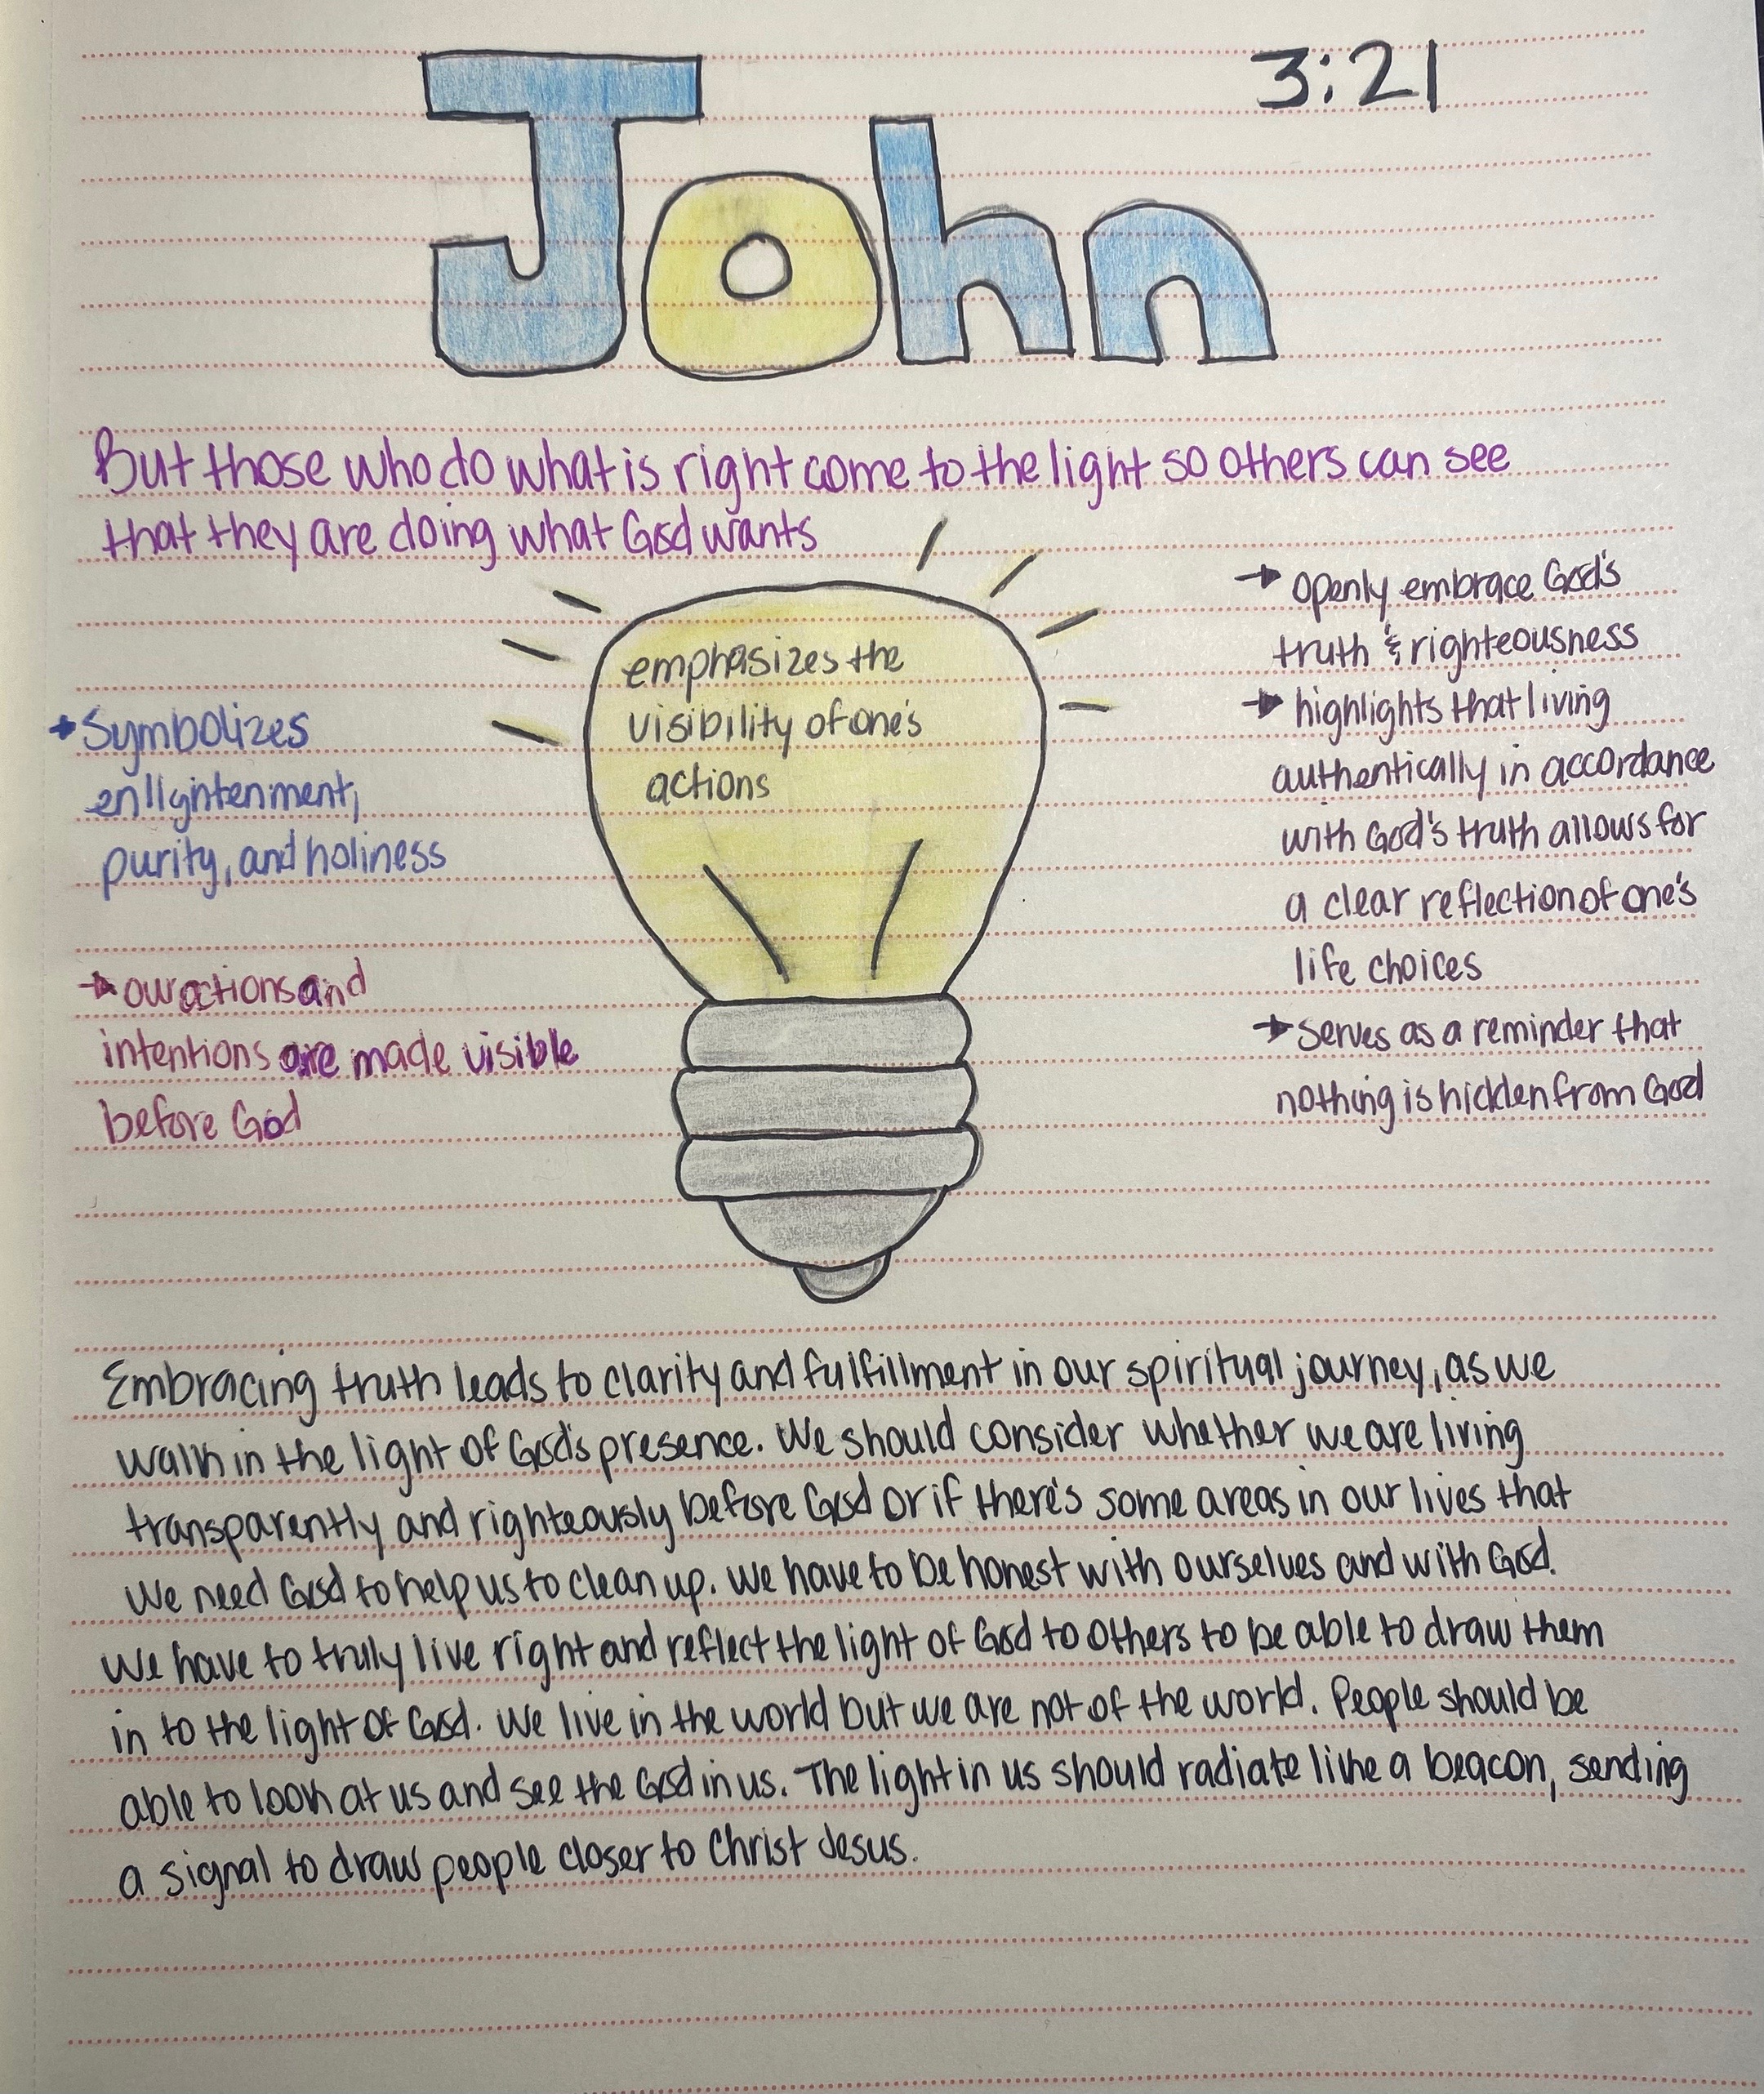 John
3:21
But those who do what is right come to the light so others can see
that they are doing what God wants
emphasizes the
visibility of one's
actions
→ Symbolizes
enlightenment,
purity, and holiness
→ our actions and
intentions are made visible
before God
→ openly embrace God's
truth & righteousness
→ highlights that living
authentically in accordance
with God's truth allows for
a clear reflection of one's
life choices
→ serves as a reminder that
nothing is hidden from God
Embracing truth leads to clarity and fulfillment in our spiritual journey, as we
walk in the light of God's presence. We should consider whether we are living
transparently and righteously before God or if there's some areas in our lives that
we need God to help us to clean up. We have to be honest with ourselves and with God.
We have to truly live right and reflect the light of God to others to be able to draw them
in to the light of God. We live in the world but we are not of the world. People should be
able to look at us and see the God in us. The light in us should radiate like a beacon, sending
a signal to draw people closer to Christ Jesus.